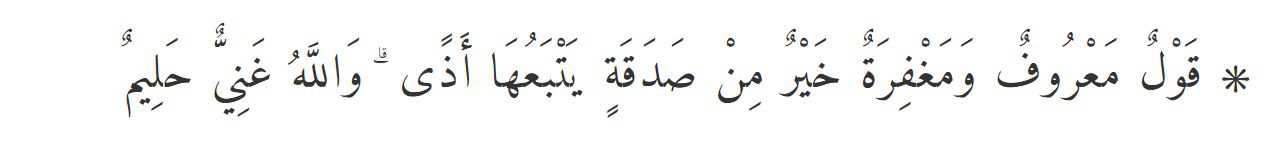 * قَوْلٌ مَعْرُوفٌ وَمَغْفِرَةٌ خَيْرٌ مِنْ صَدَقَةٍ يَتْبَعُهَا أَذًى ۗ وَاللَّهُ غَنِيٌّ حَلِيمٌ